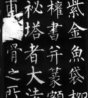 紫金魚袋柳
權書并篆額
秘塔者大法
骨之所